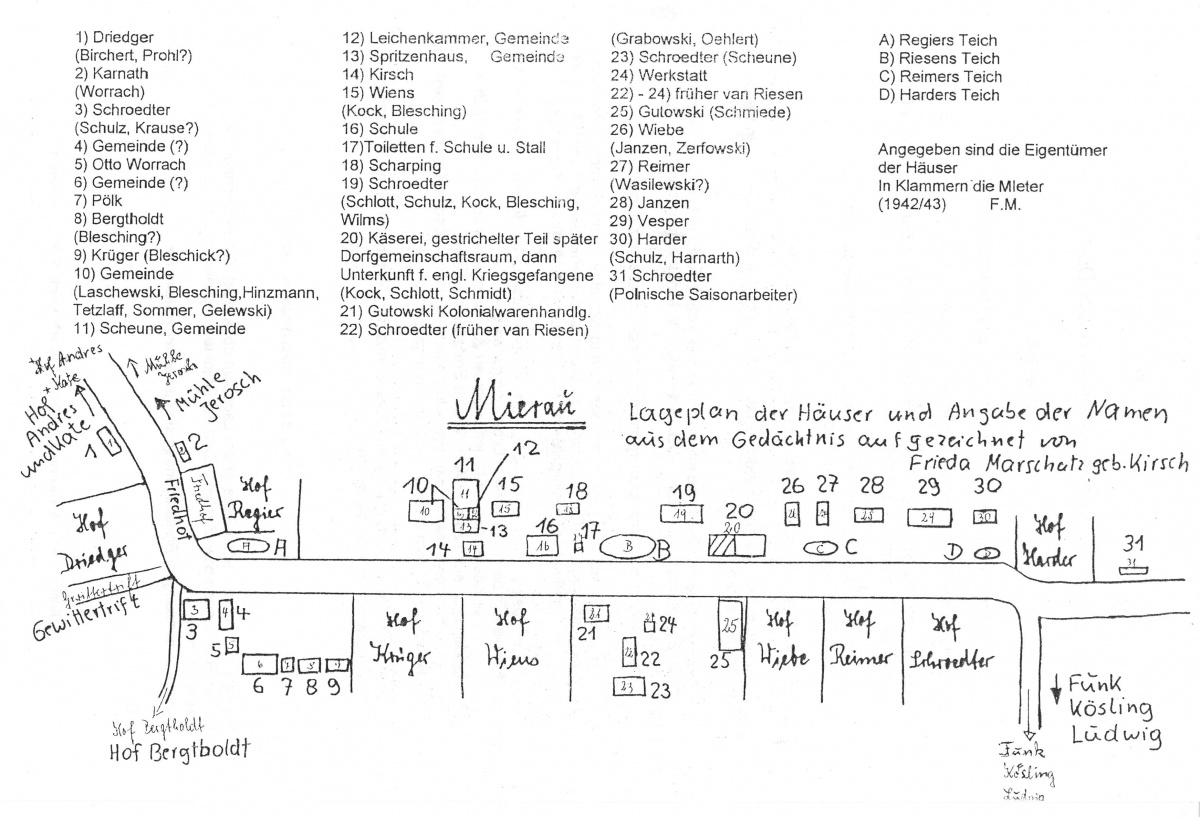 1) Driedger
(Birchert, Prohl?)
2) Karnath
(Worrach)
3) Schroedter
(Schulz, Krause?)
4) Gemeinde (?)
5) Otto Worrach
6) Gemeinde (?)
7) Pölk
8) Bergtholdt
(Blesching?)
9) Krüger (Bleschick?)
10) Gemeinde
(Laschewski, Blesching,Hinzmann,
Tetzlaff, Sommer, Gelewski)
11) Scheune, Gemeinde
12) Leichenkammer, Gemeinde
13) Spritzenhaus, Gemeinde
14) Kirsch
15) Wiens
(Kock, Blesching)
16) Schule
17)Toiletten f. Schule u. Stall
18) Scharping
19) Schroedter
(Schlott, Schulz, Kock, Blesching,
Wilms)
20) Käserei, gestrichelter Teil später
Dorfgemeinschaftsraum, dann
Unterkunft f. engl. Kriegsgefangene
(Kock, Schlott, Schmidt)
21) Gutowski Kolonialwarenhandlg.
22) Schroedter (früher van Riesen)
(Grabowski, Oehlert)
23) Schroedter (Scheune)
24) Werkstatt
22) - 24) früher van Riesen
25) Gutowski (Schmiede)
26) Wiebe
(Janzen, Zerfowski)
27) Reimer
(Wasilewski?)
28) Janzen
29) Vesper
30) Harder
(Schulz, Harnarth)
31 Schroedter
(Polnische Saisonarbeiter)
A) Regiers Teich
B) Riesens Teich
C) Reimers Teich
D) Harders Teich
Angegeben sind die Eigentümer
der Häuser
In Klammern die MIeter
(1942/43) F.M.
Mieraŭ
Lageplan der Häuser und Angabe der Namen
aus dem Gedächtnis aufgezeichnet von
Frieda Marschatz geb. Kirsch
+ Hof Andres
+ Kate
Hof
Andres
und Kate
Mühle
Jerosch
Mühle
Jerosch
1
2
Friedhof
Friedhof
Hof
Regier
A A
Hof
Driedger
Gewittertrift
Gewittertrift
10 10
11 11
12
13 13
14 14
15 15
16 16
17
18 18
19 19
20 20
B B
26
27
28 28
29 29
30 30
C C
D D
Hof
Harder
31 31
3 3
4 4
5 5
6 6
7 7
8 8
9 9
Hof
Krüger
Hof
Wiens
21 21
22 22
23 23
24
25 25
Hof
Wiebe
Hof
Reimer
Hof
Schroedter
Hof Bergtholdt
Hof Bergtboldt
Fŭnk
Kösling
Lŭdwig
Fŭnk
Kösling
Lŭdwig